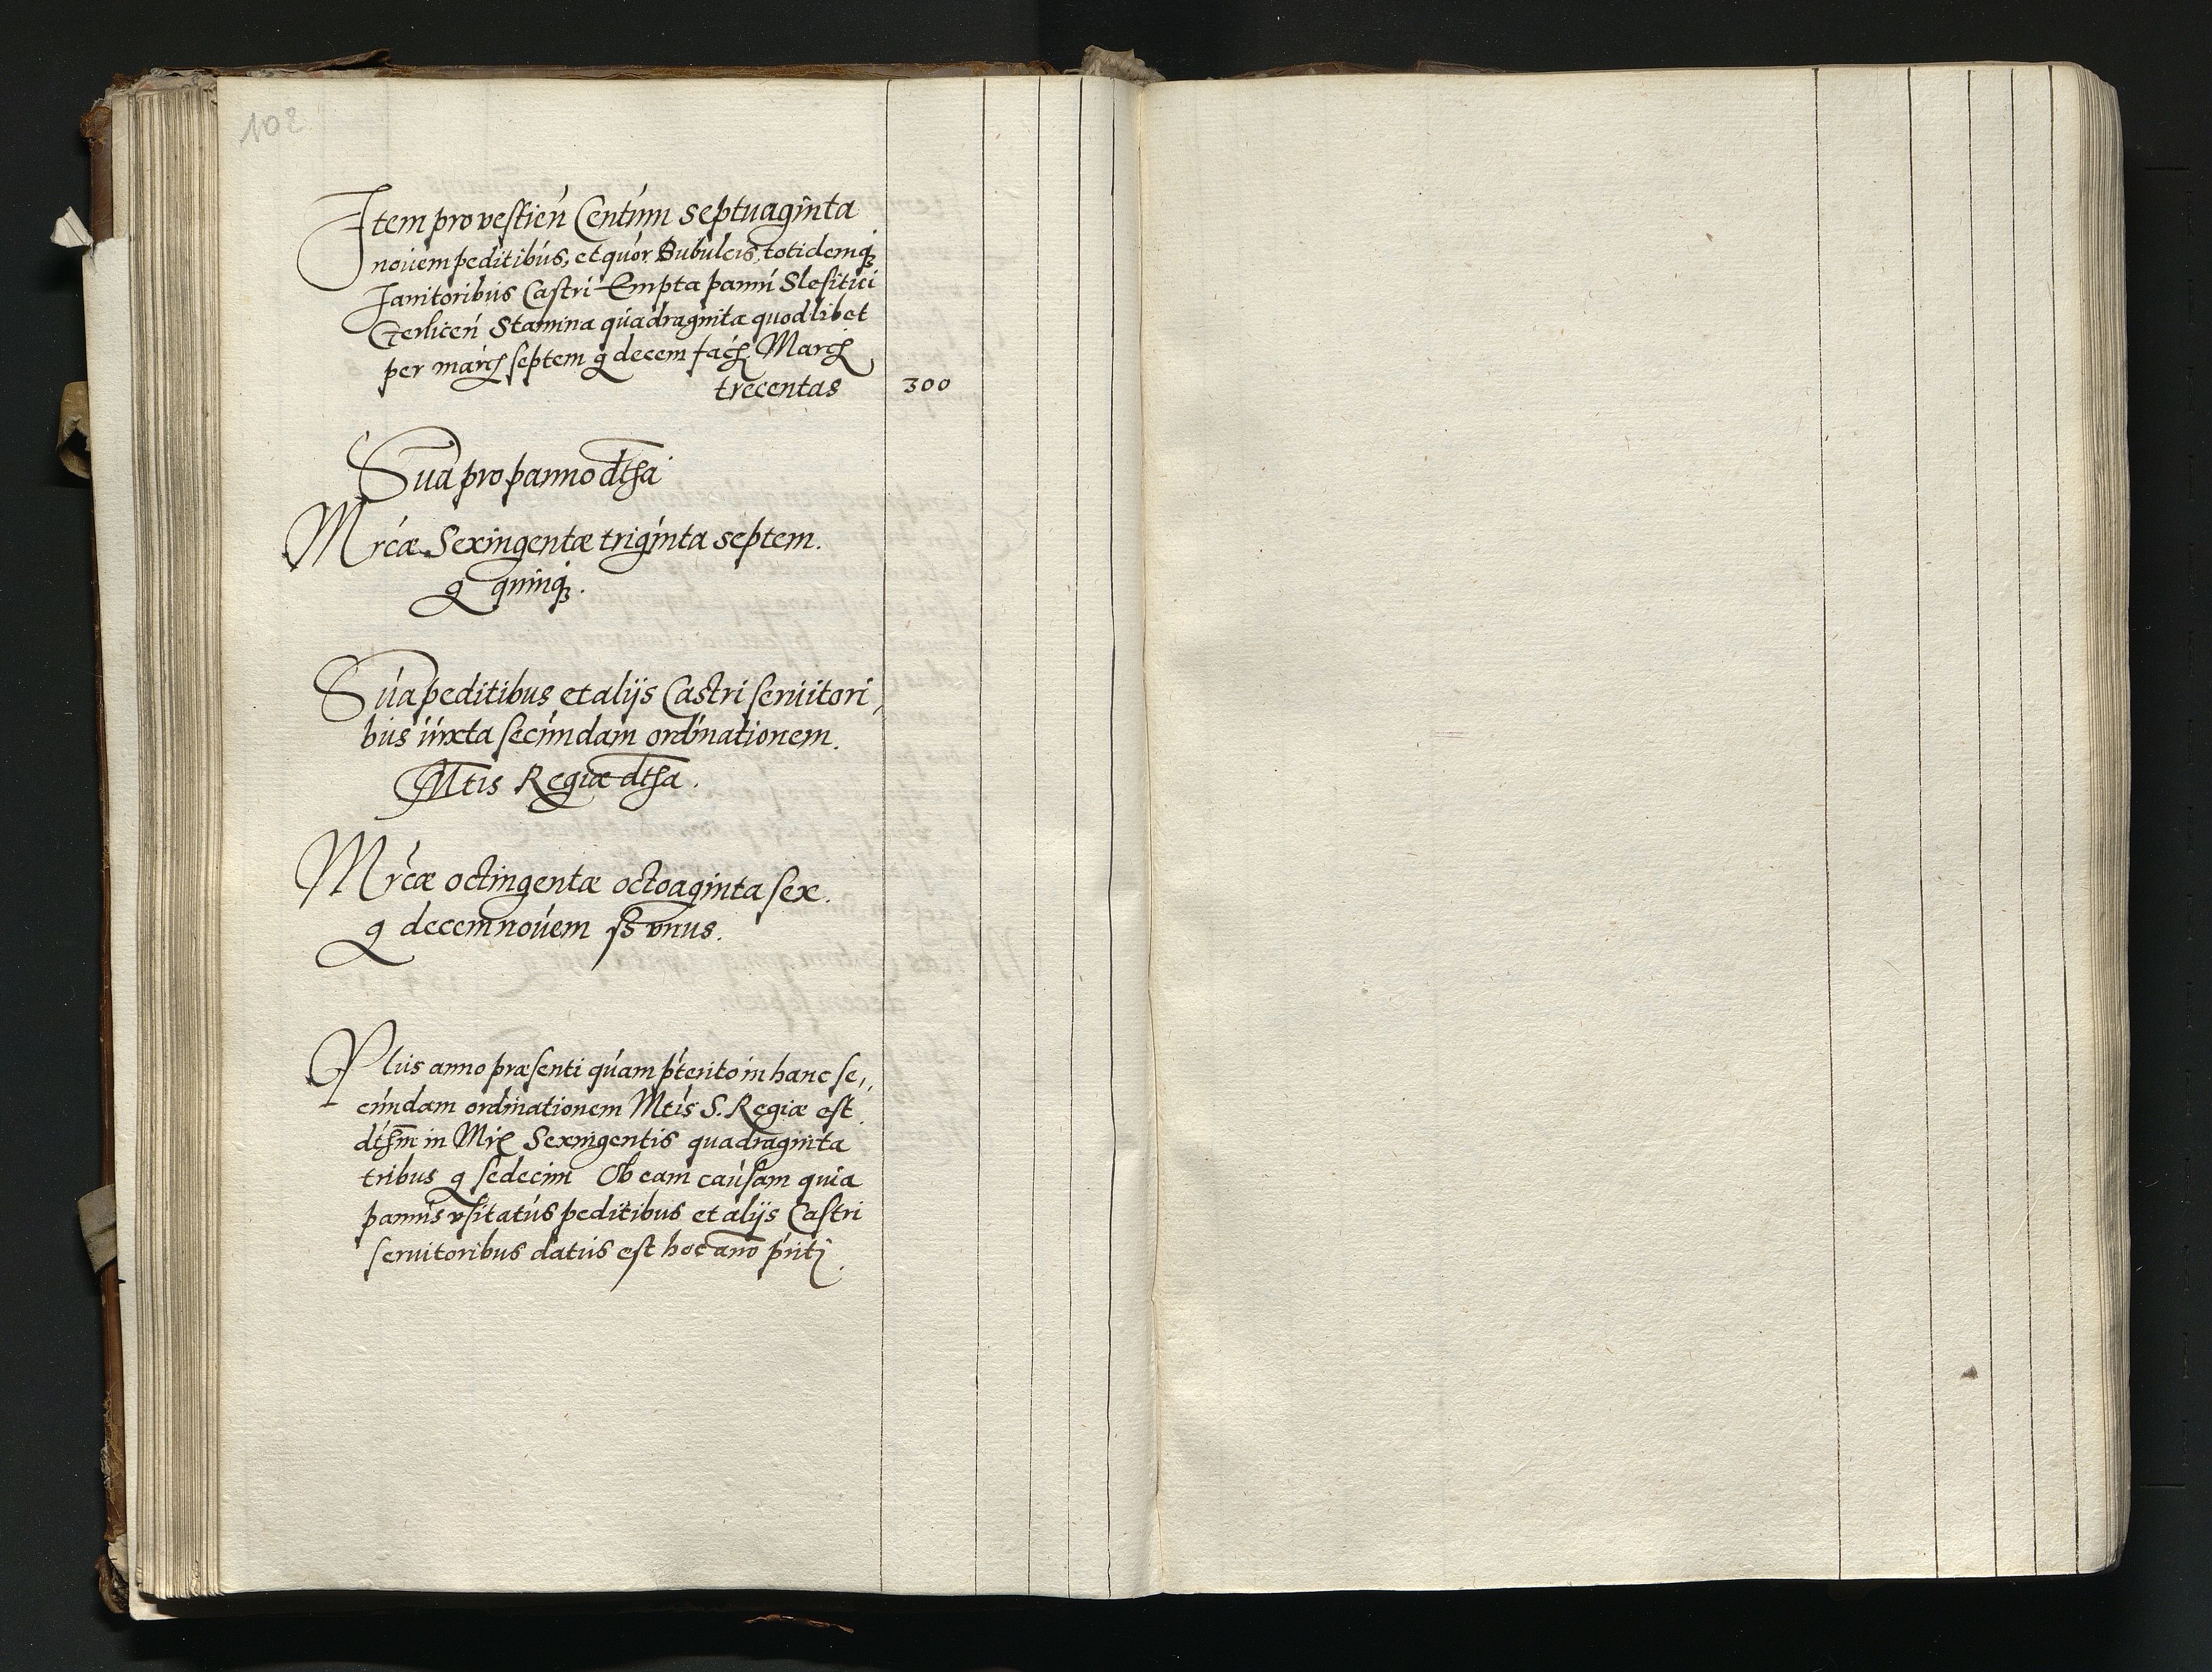 102
Item pro vestień Centum septuaginta
nouem peditibus, et quor Bubulcis, totidemq́ꝫ
Janitoribus Castri Empta panni Slesitici
Gerliceń Stamina quadraginta quodlibet
per marcꝭ septem g decem facꝭ Marcꝭ
trecentas 300
Sua pro panno dtſa
Mrcæ Sexingentæ triginta septem.
g quinq́ꝫ.
Sua peditibus et alijs Castri seruitori,
bus iuxta secundam ordinationem.
Mtis Regiæ dtſa.
Mrcæ octingentæ octoaginta sex.
g decemnouem ß vnus.
Plus anno præsenti quam pterito in hanc se,,
cundam ordinationem Mtis S. Regiæ est
dtſm in Mrꝭ Sexingentis quadraginta
tribus g sedecim Ob eam causam quia
pannus vsitatus peditibus et alijs Castri
seruitoribus datus est hoc ano pńti.